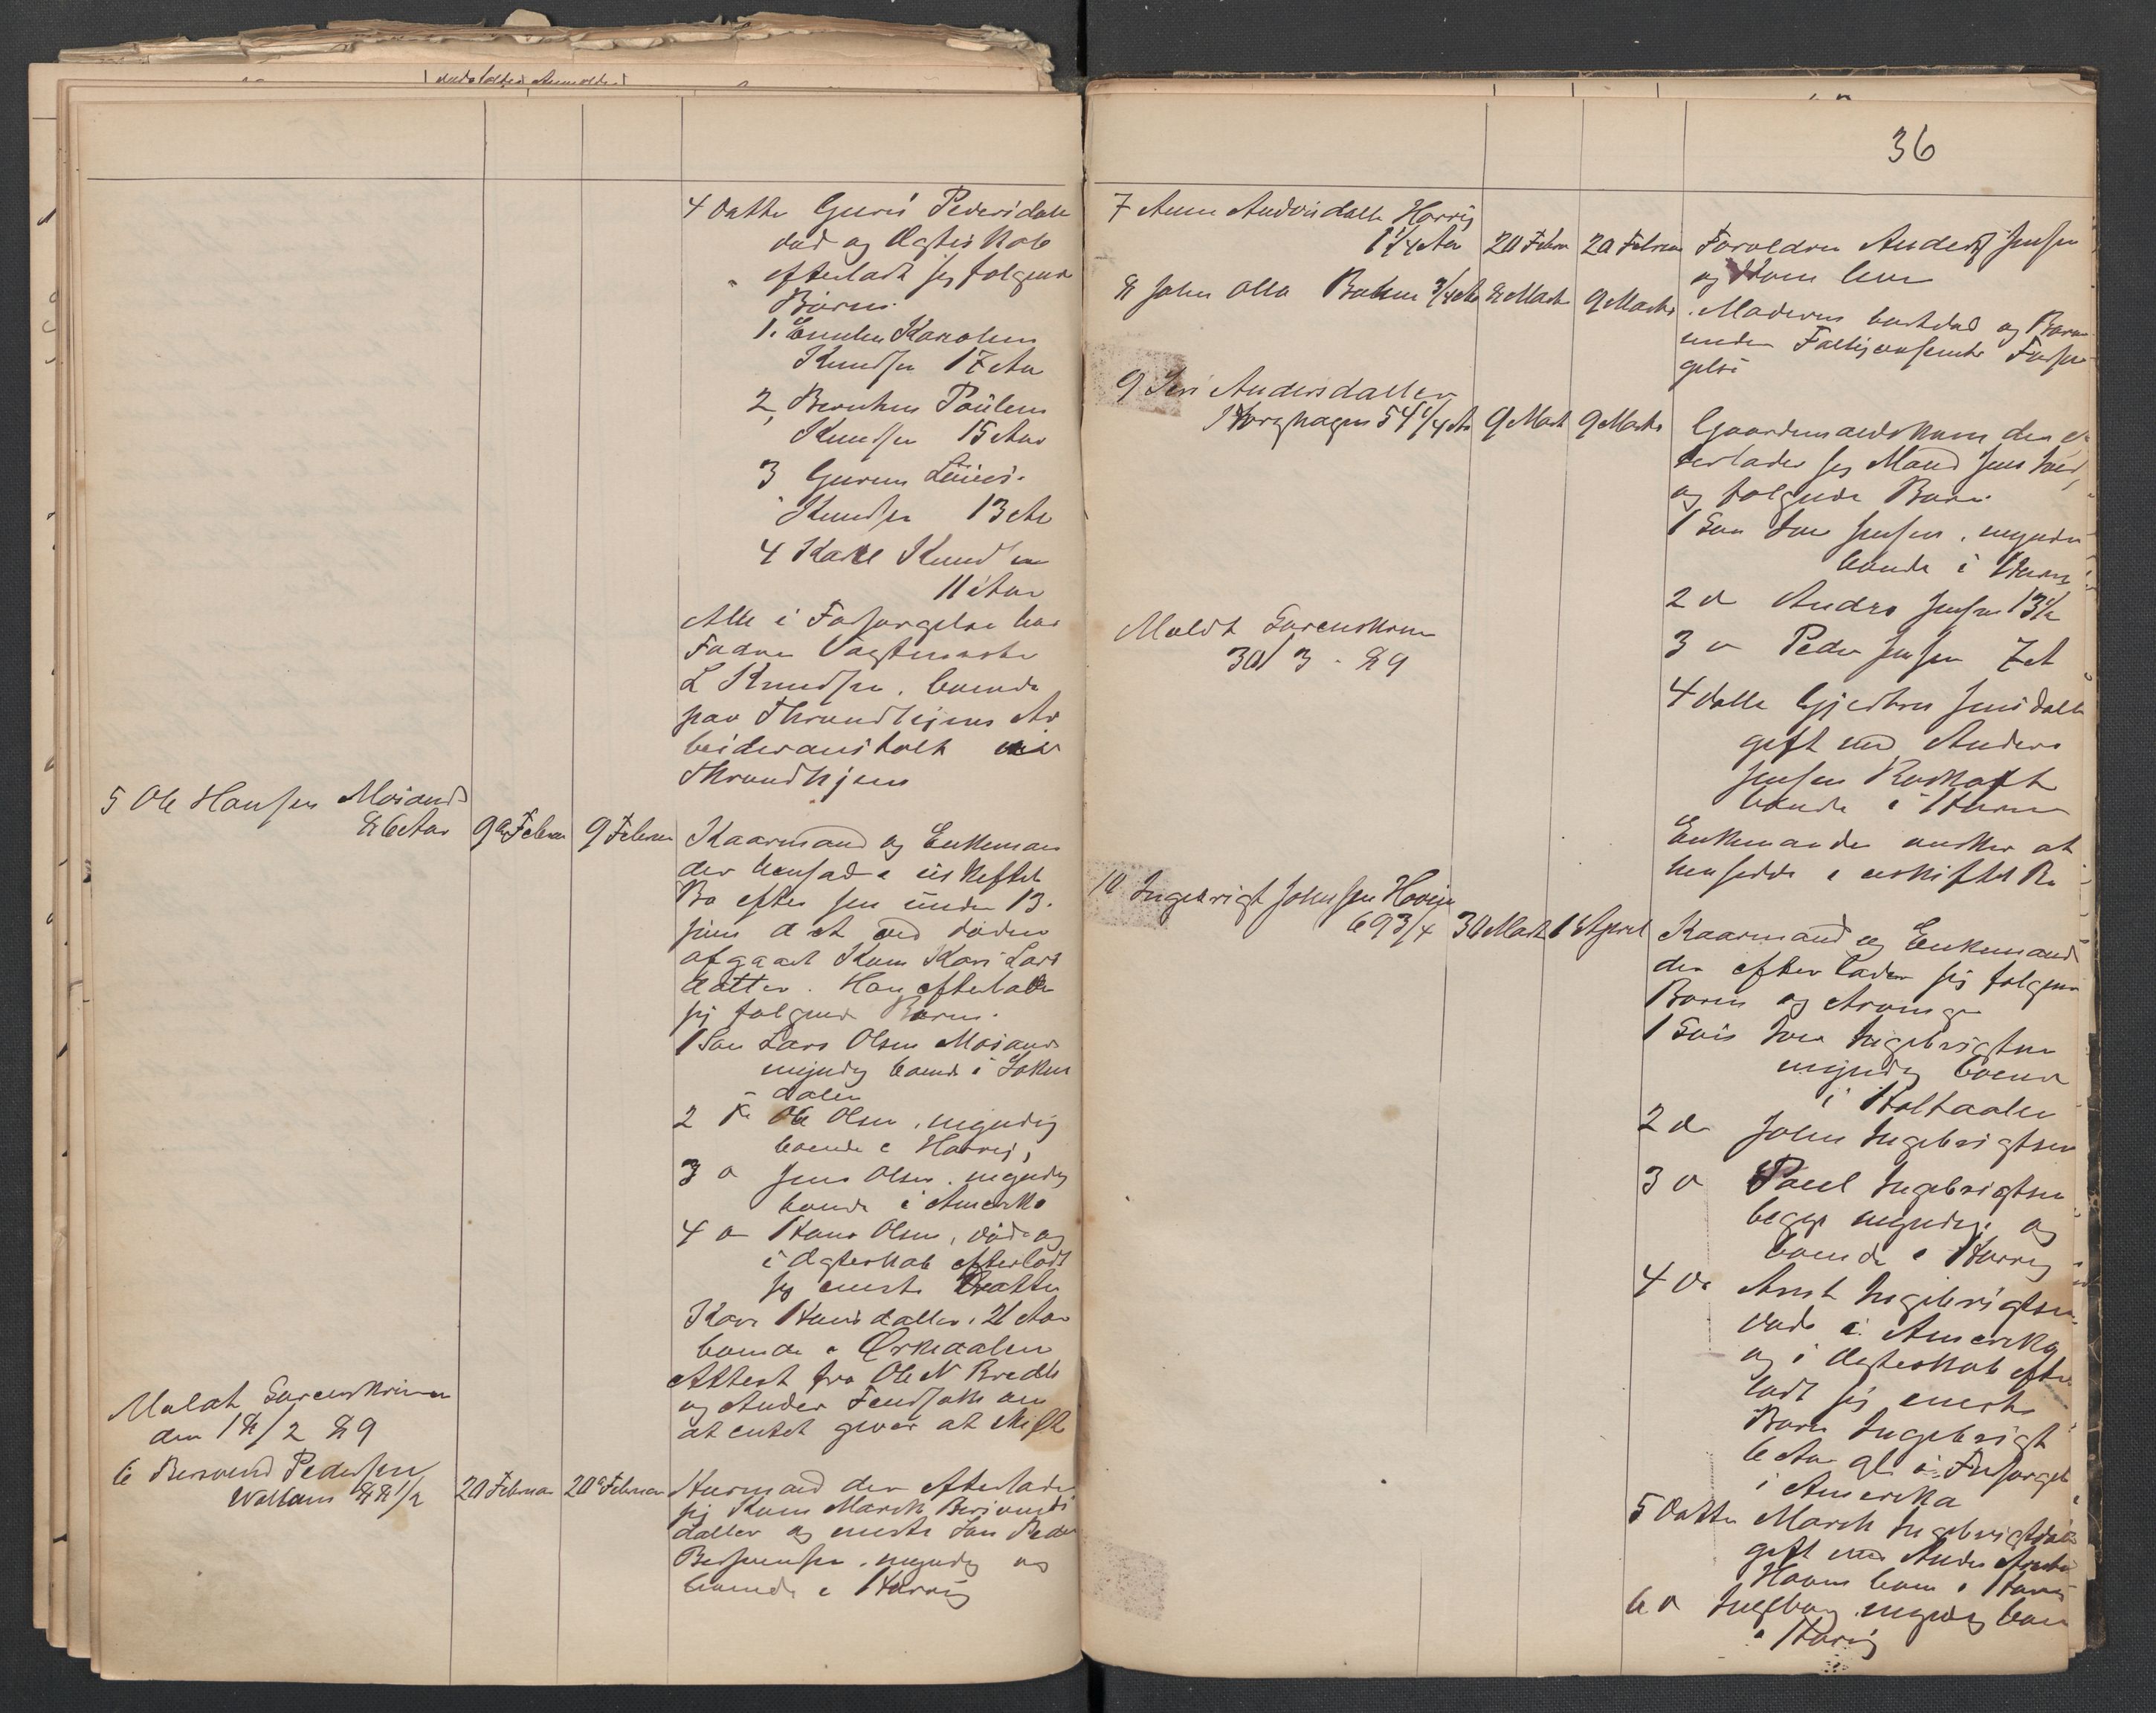 4 Datter Guru Pedersdatt
død og i Ægteskab
efterladt sig følgende
Børn.
1. Karoline
Knudsen 17 Aar
2, Pauline
Knudsen 15 Aar
3 Guruine Louise
Knudsen 13 Aar
4 Karl Knudsen
11 Aar
Alle i Forsørgelse hos
Fadren Vagtmester
L Knudsen. boende
paa Throndhjems Ar
beidsanstalt ved
Throndhjem
5 Ole Hansen Mosand
86 Aar 9de Februar 9 Februar Kaarmand og Enkeman
der hensad i uskiftet
Bo efter sin under 13.
juni d A ved døden
afgaaet Kone Kari Lars
datter. Han efterlader
sig følgende Børn.
1 Søn Lars Olsen Mosand
myndig boende i Soknedalen
2 do Ole Olsen, myndig
boende i Horrig,
3 do Jens Olsen. myndig
boende i Amerika
4 do Hans Olsen, død og
i Ægteskab efterladt
sig eneste Datter
Kari Hansdatter, 21 Aar
boende i Ørkedalen
Attest fra Ole N Bredli
og Anders om
at intet giver at skifte
Meldt Sorenskriveren
den 18/2 89
6 Bersvend Pedersen
88 1/2 20 Februar 20de Februar Huusmand der efterlader
sig Kone Marit Bersvends
datter og eneste Søn Peder
Bersvensen. myndig og
boende i Horrig
36
7 Anne Andersdatt Horrig
1 1/4 Aar 20 Febru 20 Februar Forældre Anders Jensen
og Kone lever
8 John Olsa Bakken 3/4 Aar 8 Marts 9 Marts Moderen bortdød og Barn
under Fattigvæsenets Forsør
gelse
9 Siri Andersdatter
Korghagen 54 1/4 Aar 9 Mart 9 Marts Gaardmandskone der ef
terlader sig Mand Jens Iver
og følgende Børn.
1 Søn Iver Jensen, myndig
boende i Horrig
2 do Anders Jensen 13 1/2
3 do Peder Jensen 7 A
4 Datte Gjertru Jensdatt
gift med Anders
Jensen Roskaft
boende i Horrig
Enkemanden ønsker at
hensidde i uskiftet Bo
Meldt Sorenskriver
30/3 - 89
10 Ingebrigt Johnsen Hovin
69 3/4 30 Marts 1 April Kaarmand og Enkemand
der efterlader sig følgende
Børn og Arvinger
1 Søn Iver Ingebrigtsen
myndig boende
i Holtaalen
2 do John Ingebrigtsen
3 do Paul Ingebrigtsen
begge myndige og
boende i Horrig
4 do Arnt Ingebrigtsen
død i Amerika
og i Ægteskab efter
ladt sig eneste
Barn Ingebrigt
6 Aar gl i Forsørgels
i Amerika
5 Datter Marit Ingebrigtsdatt
gift med Anders
Hovin boen i Horrig
6 do Ingeborg myndig boen
i Horrig